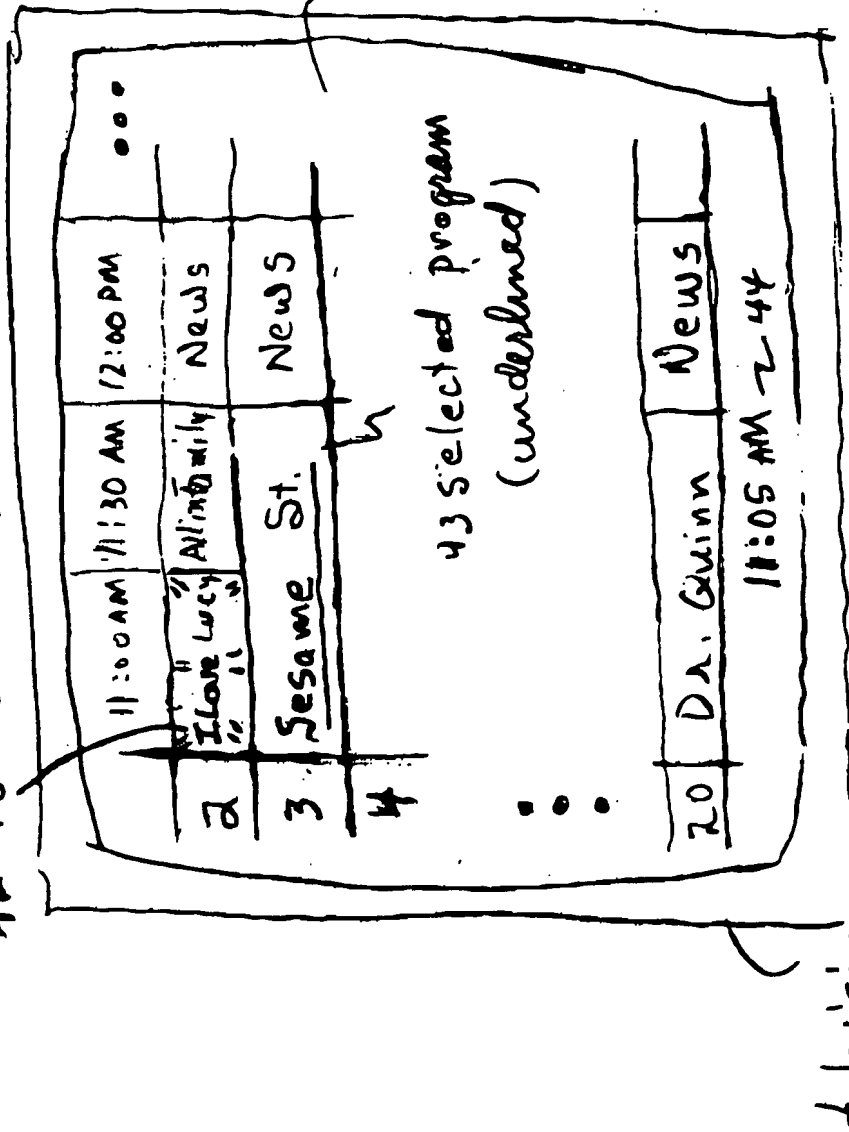 11:00 AM 11:30 AM 12:00 PM
2 "I Love Lucy" All in Family News
3 Sesame St. News
4
43 selected program
(underlined)
20 Dr. Quinn News
11:05 AM ~ 44